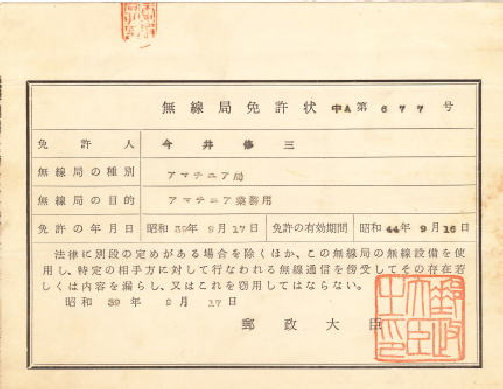 無線局免許状 中A第 677 号
免許人 今井修三
無線局の種別 アマチュア局
無線局の目的 アマチュア業務用
免許の年月日 昭和 39年 9月 17日 免許の有効期間 昭和 44年 9月 16日
法律に別段の定めがある場合を除くほか、この無線局の無線設備を使
用し、特定の相手方に対して行なわれる無線通信を傍受してその存在若
しくは内容を漏らし、又はこれを窃用してはならない。
昭和 39 年 9月 17日
郵政大臣
郵政大臣之印